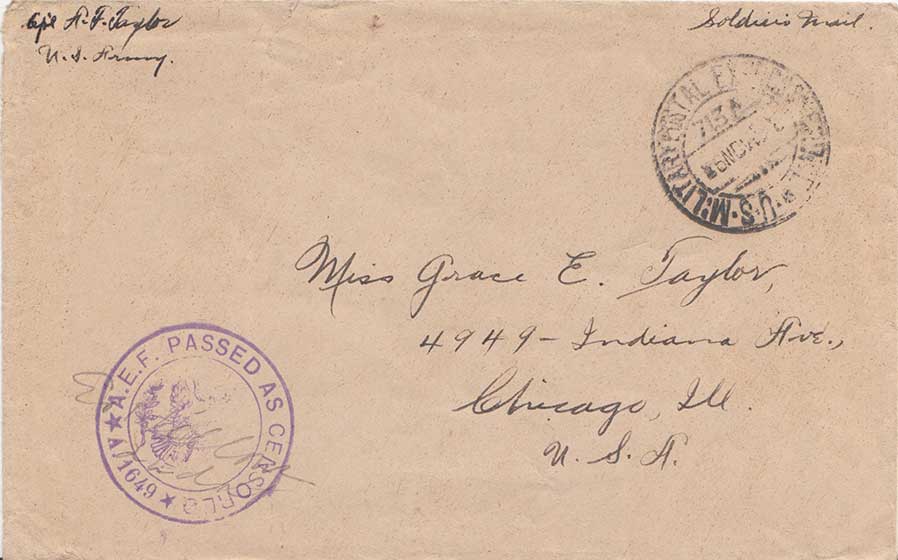 Cpl A. F. Taylor
U. S. Army.
Soldier's Mail.
U.S. MILITARY POSTAL
713A
Miss Grace E. Taylor,
4949 - Indiana Ave.,
Chicago, Ill.
U. S. A.
A.E.F. PASSED AS CENSORED
A/1649